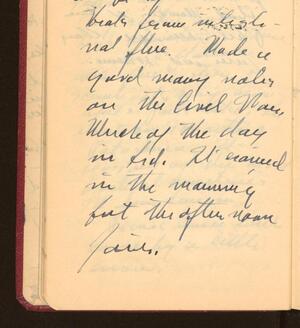 from intesti-
nal flue. Made a
good many notes
on the Civil War.
Much of the day
in bed. It rained
in the morning
but the afternoon
fair.